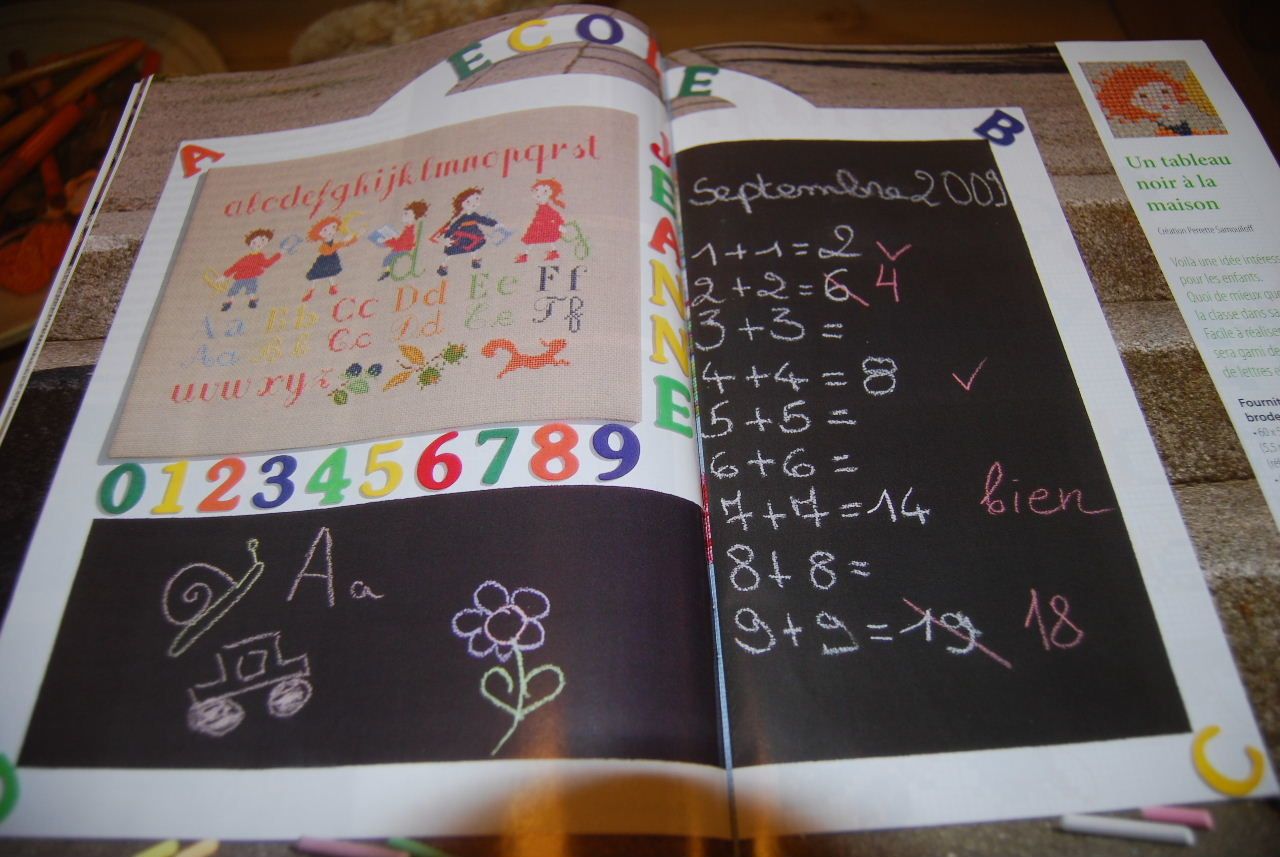 ECOLE
A
B
JEANNE
abcdefghijklmnopqrst
Aa Bb Cc Dd Ee Ff
Aa Bb Cc Dd Ee Ff
uvwxyz
0123456789
Aa
Septembre 2009
1+1=2 ✓
2+2=6 4
3+3=
4+4=8 ✓
5+5=
6+6=
7+7=14 bien
8+8=
9+9=19 18
C
Un tableau
noir à la
maison
Création Perrette Samouïloff
Voilà une idée
pour les enfants.
Quoi de mieux
la classe dans
Facile à
sera garni de
de lettres